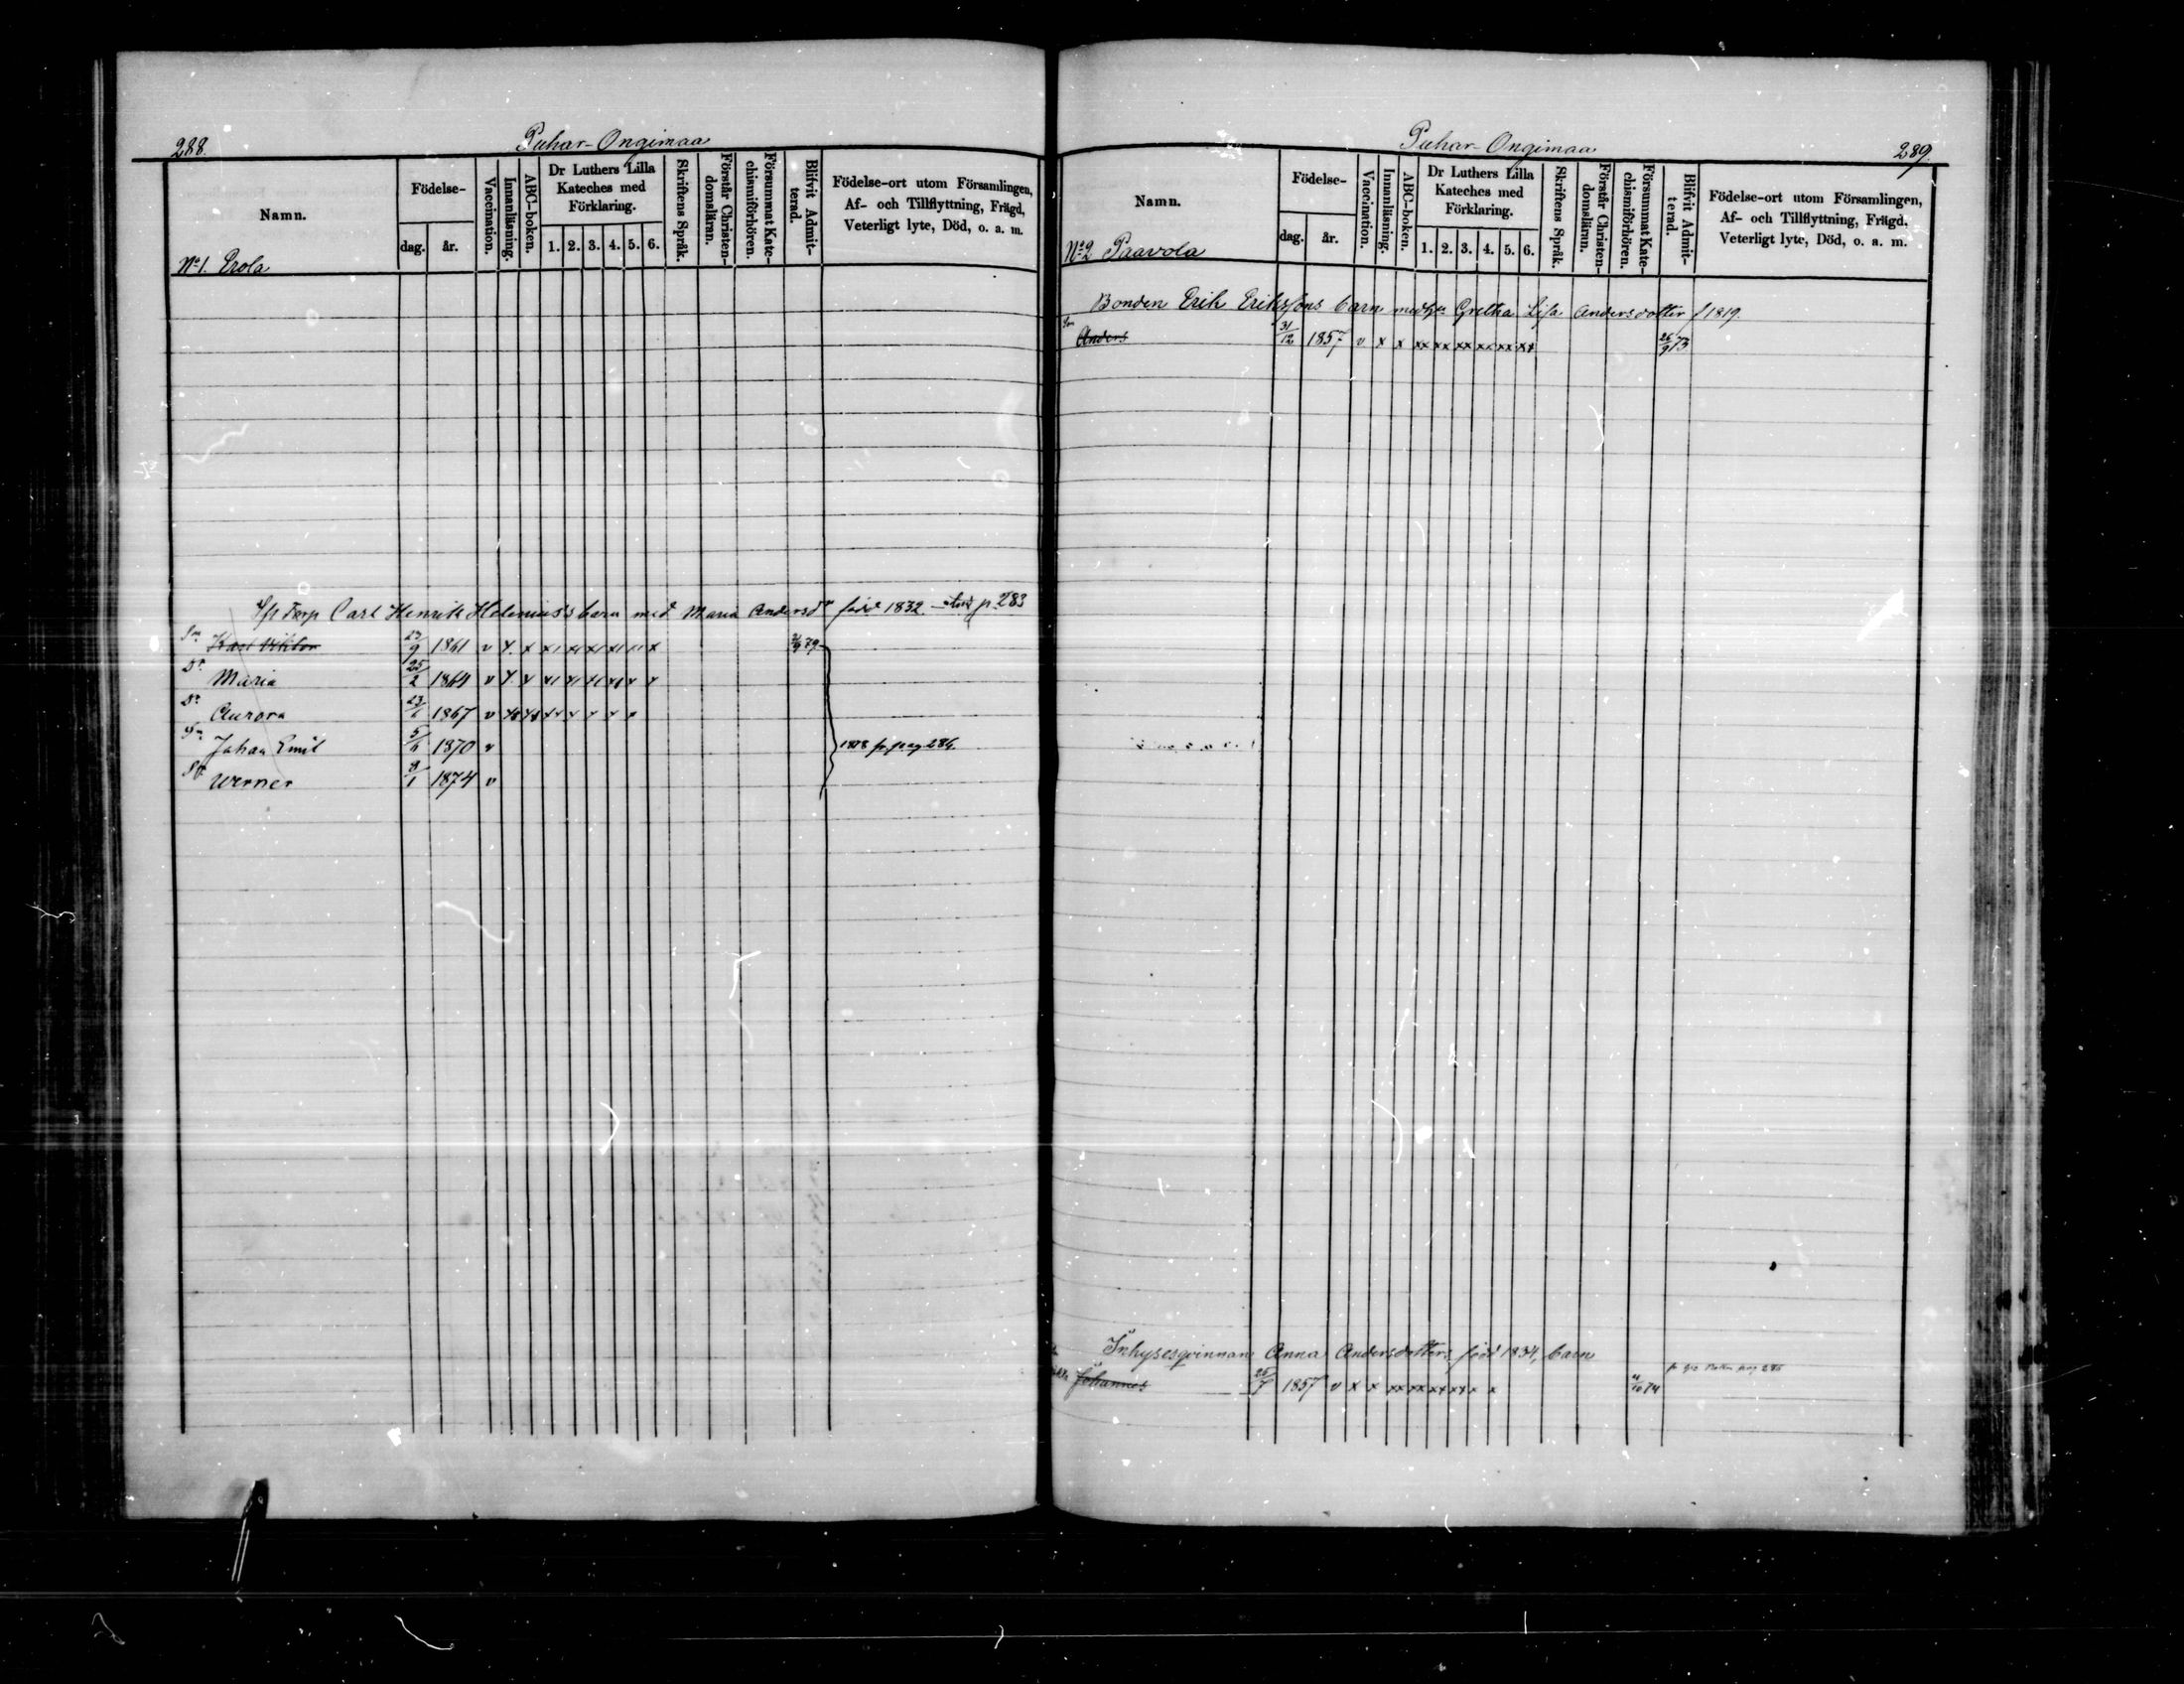 288.
Puhar-Ongimaa
Namn.
Födelse-
dag.
år.
Vaccination.
Innanläsning.
ABC-boken.
Dr Luthers Lilla
Kateches med
Förklaring.
1. 2. 3. 4. 5. 6.
Skriftens Språk.
Förstår Christen-
domsläran.
Försummat Kate-
chismiförhören.
Blifvit Admit-
terad.
Födelse-ort utom Församlingen,
Af- och Tillflyttning, Frägd,
Veterligt lyte, Död, o. a. m.
No 1. Erola
Carl Henrik Helenius's barn med Maria Andersdr född 1832 p. 283
Sn Karl Viktor 23/9 1861 v x. x x1 x1 x1 x1 11 x 79
Dr Maria 25/2 1864 v x. x x1 x1 x1 x1 x x
Dr Aurora 1867 v
Sn Johan Emil 5/6 1870 v 1878 fr pag 284.
Sn Werner 8/1 1874 v
Puhar-Ongimaa
289.
Namn.
Födelse-
dag.
år.
Vaccination.
Innanläsning.
ABC-boken.
Dr Luthers Lilla
Kateches med
Förklaring.
1. 2. 3. 4. 5. 6.
Skriftens Språk.
Förstår Christen-
domsläran.
Försummat Kate-
chismiförhören.
Blifvit Admit-
terad.
Födelse-ort utom Församlingen,
Af- och Tillflyttning, Frägd,
Veterligt lyte, Död, o. a. m.
No 2 Paavola
Bonden Erik Erikssons barn med Gretha Lisa Andersdotter f 1819.
Son Anders 31/12 1857 v x x xx xx xx xx xx xx 26/9 73
Inhysesqvinnan Anna Andersdotters född 1834, barn
Johannes 1857 v x x xx xx xx xx x x 4/10 74